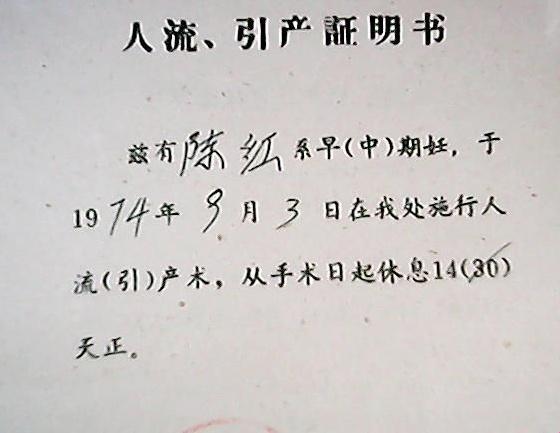 人流、引产証明书
兹有陈红系早(中)期妊，于
1974年9月3日在我处施行人
流(引)产术，从手术日起休息14(30)
天正。